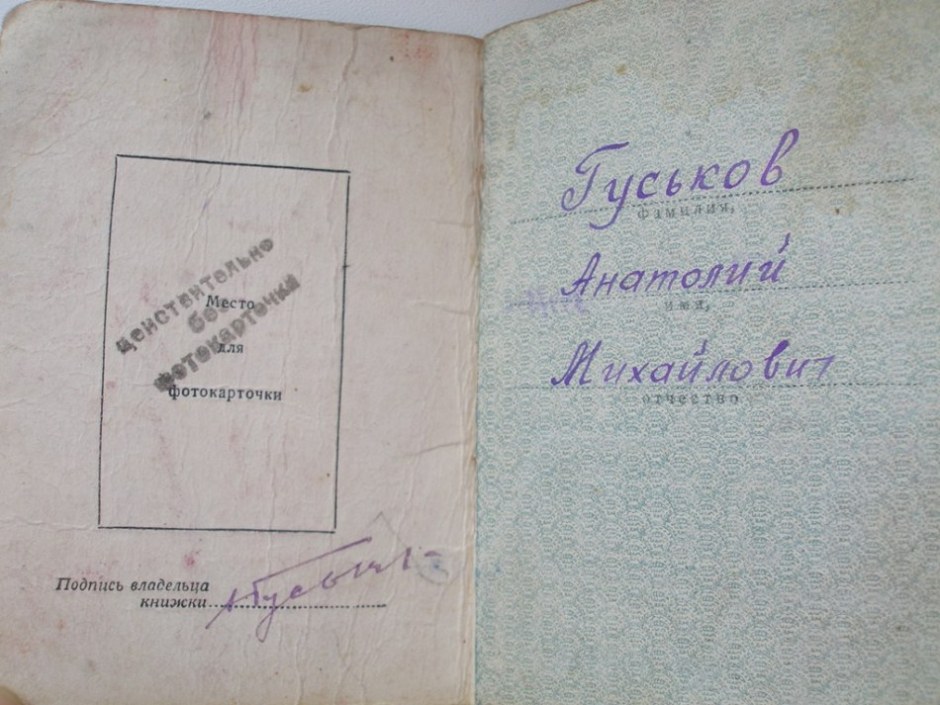 действительно
без
фотокарточки
Место
для
фотокарточки
Подпись владельца
книжки
Гуськов
фамилия,
Анатолий
имя,
Михайлович
отчество